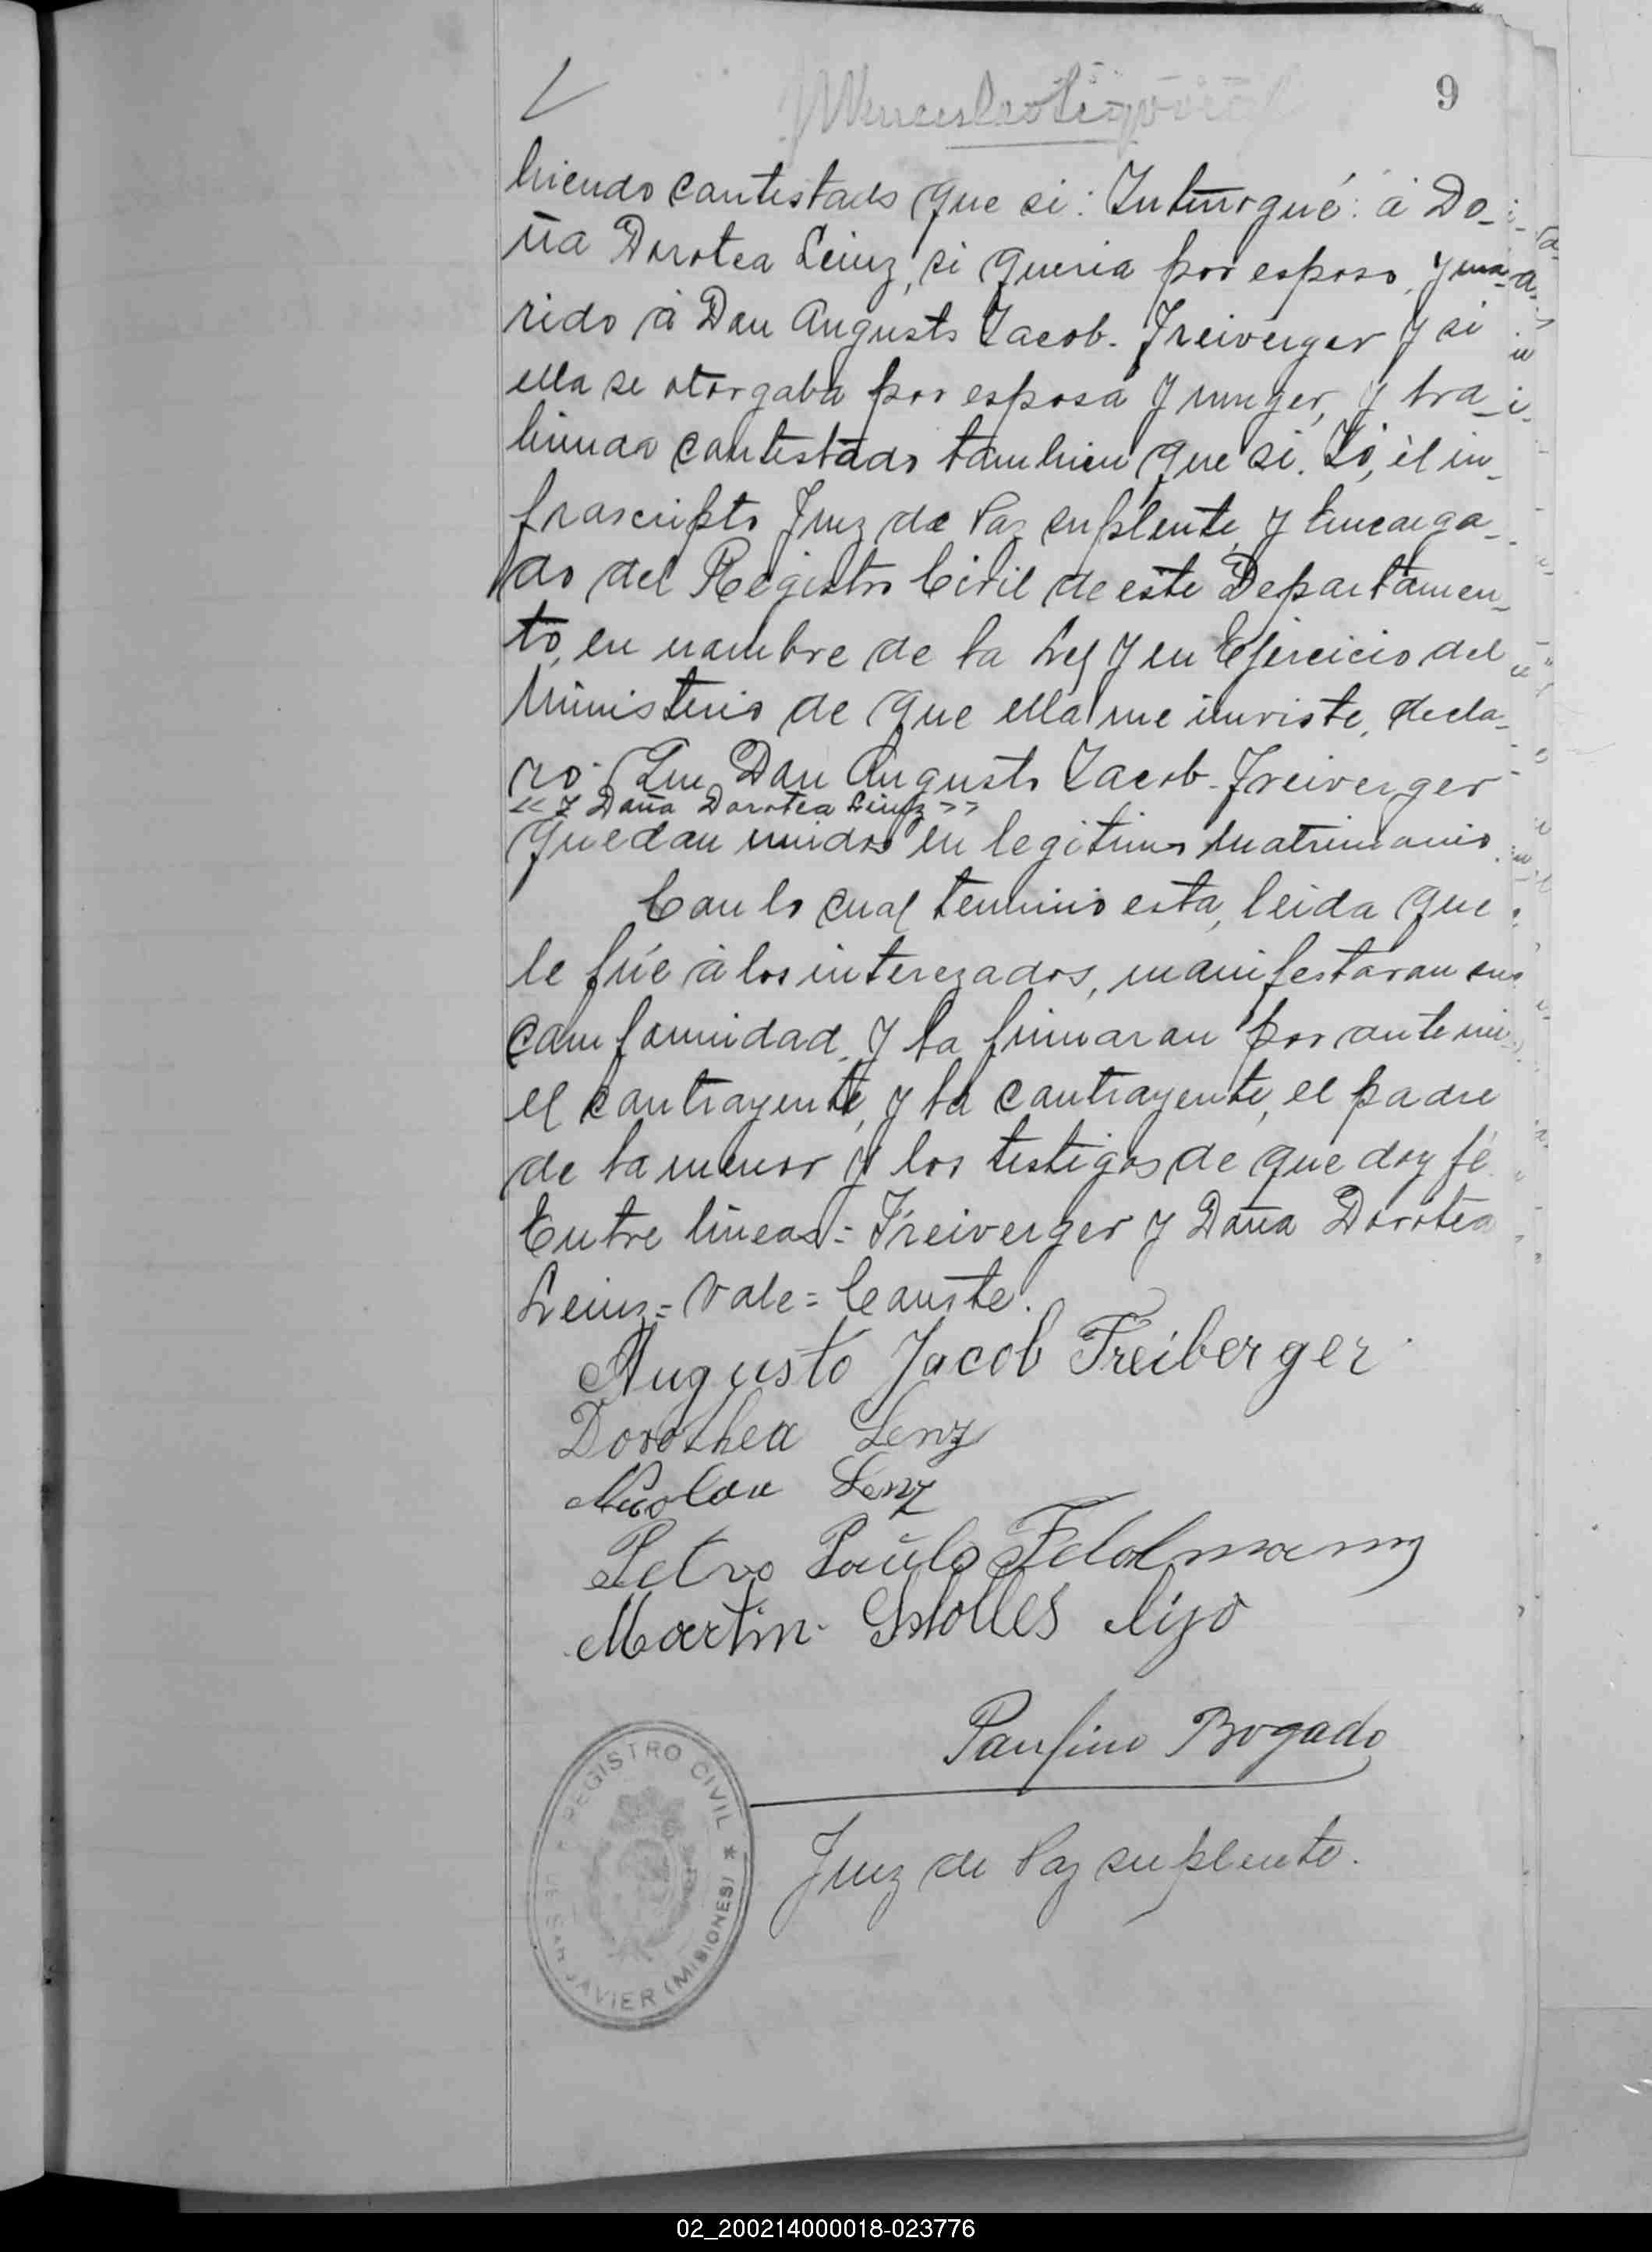 9
biendo contestado que si: Interrogué: á Do-
ña Dorotea Leinz, si queria por esposo, y ma-
rido á Don Augusto Jacob. Freiverger y si
ella se otorgaba por esposa y muger, y ha-
biendo contestado tambien que si. Yó, él in-
frascripto Juez de Paz suplente, y Encarga-
do del Registro Civil de este Departamen-
to, en nombre de la Ley y en Ejercicio del
Ministerio de que ella me inviste, decla-
ro: Que Don Augusto Jacob-Freiverger
<< Y Doña Dorotea Leinz >>
quedan unidos en legitimo matrimonio.
Con lo cual terminó esta, leida que
le fúe á los interezados, manifestaron su
comformidad, y la firmaron por ante mi
el contrayente, y la contrayente, el padre
de la menor y los testigos de que doy fé
Entre lineas = Freiverger y Doña Dorotea
Leinz = Vale = Conste.
Augusto Jacob Freiberger
Dorothea Lenz
Nicolau Lenz
Petro Paulo Feldmann
Martin Lijo
Paulino Bogado
Juez de Paz suplente.
REGISTRO CIVIL * DE SAN JAVIER (MISIONES)
02_200214000018-023776